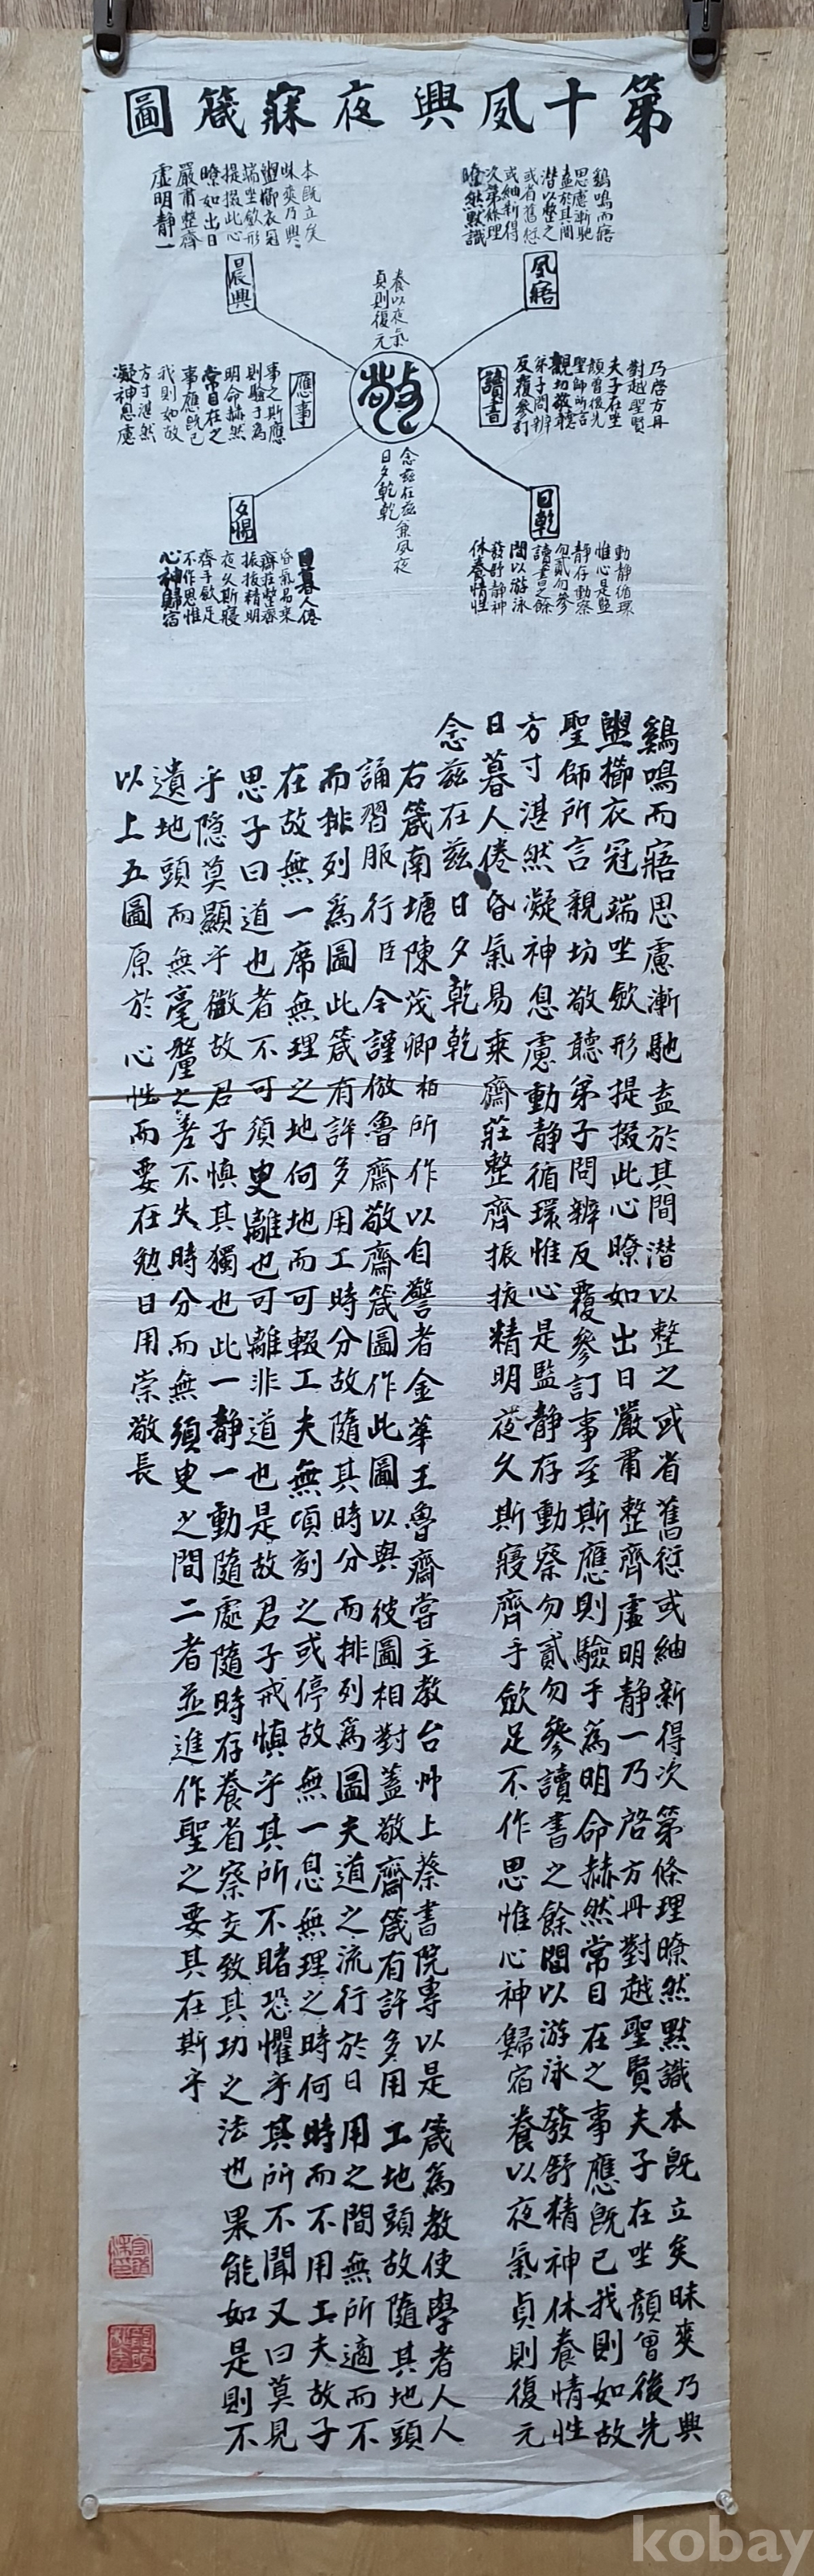 第十夙興夜寐箴圖
鷄鳴而寤
思慮漸馳
盍於其間
潜以整之
或省舊愆
或紬新得
次第條理
瞭然默識
夙寤
本旣立矣
昧爽乃興
盥櫛衣冠
端坐斂形
提掇此心
瞭如出日
嚴肅整齊
虛明靜一
晨興
養以夜氣
貞則復元
敬
讀書
乃啓方册
對越聖賢
夫子在坐
顔曾後先
聖師所言
親切敬聽
弟子問辨
反覆參訂
應事
事之斯應
則驗于為
明命赫然
常目在之
事應旣已
我則如故
方寸湛然
凝神息慮
念玆在玆兼夙夜
日夕乾乾
日乾
動靜循環
惟心是監
靜存動察
勿貳勿參
讀書之餘
間以游泳
發舒静神
休養情性
夕惕
日暮人倦
昏氣易乘
齋莊整齊
振拔精明
夜久斯寢
齊手斂足
不作思惟
心神歸宿
鷄鳴而寤思慮漸馳盍於其間潜以整之或省舊愆或紬新得次第條理瞭然默識本旣立矣昧爽乃興
盥櫛衣冠端坐斂形提掇此心瞭如出日嚴肅整齊虛明静一乃啓方册對越聖賢夫子在坐顔曾後先
聖師所言親切敬聽弟子問辨反覆參訂事至斯應則驗于為明命赫然常目在之事應旣已我則如故
方寸湛然凝神息慮動静循環惟心是監静存動察勿貳勿參讀書之餘間以游泳發舒精神休養情性
日暮人倦昏氣易乘齋莊整齊振拔精明夜久斯寢齊手斂足不作思惟心神歸宿養以夜氣貞則復元
念玆在玆日夕乾乾
右箴南塘陳茂卿栢所作以自警者金華王魯齋嘗主教台州上蔡書院專以是箴為教使學者人人
誦習服行臣今謹倣魯齋敬齋箴圖作此圖以與彼圖相對蓋敬齋箴有許多用工地頭故隨其地頭
而排列爲圖此箴有許多用工時分故隨其時分而排列爲圖夫道之流行於日用之間無所適而不
在故無一席無理之地何地而可輟工夫無頃刻之或停故無一息無理之時何時而不用工夫故子
思子曰道也者不可須臾離也可離非道也是故君子戒愼乎其所不睹恐懼乎其所不聞又曰莫見
乎隱莫顯乎微故君子愼其獨也此一静一動隨處隨時存養省察交致其功之法也果能如是則不
遺地頭而無毫釐之差不失時分而無須臾之間二者並進作聖之要其在斯乎
以上五圖原於心性而要在勉日用崇敬長
kobay